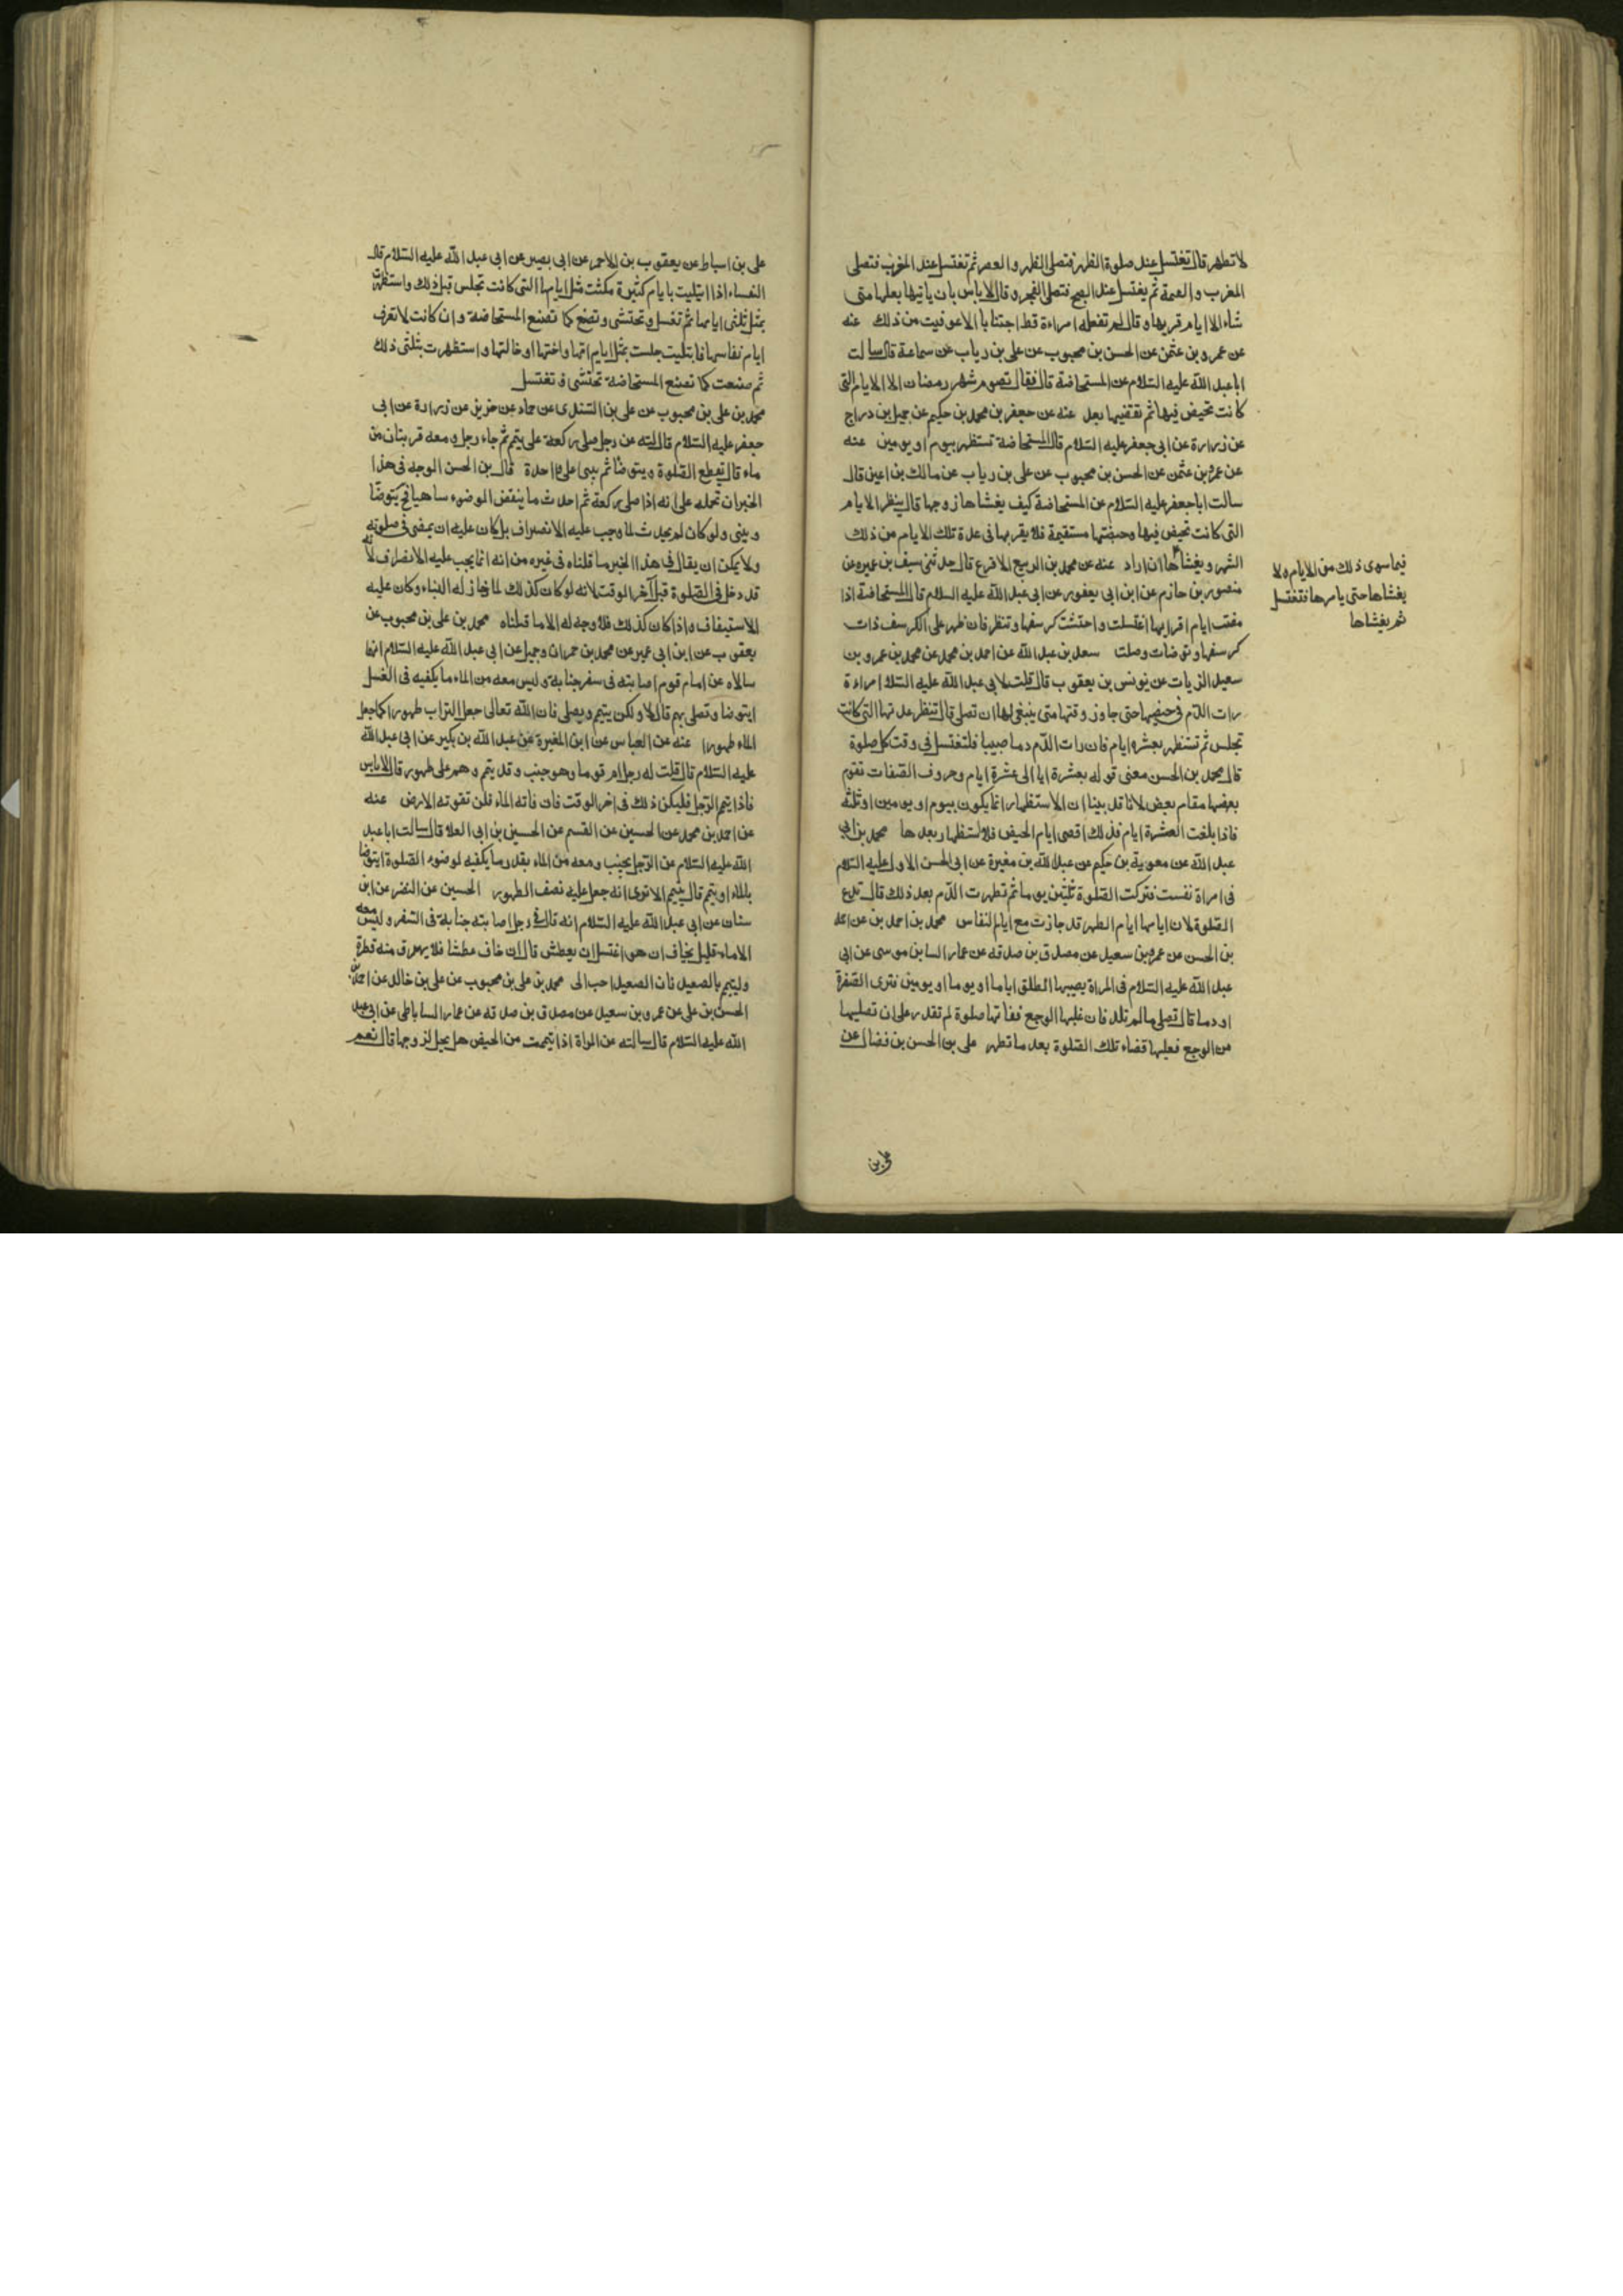 لا تطهر قال تغتسل عند صلوة الظهر فتصلى الظهر و العصر ثم تغتسل عند المغرب فتصلى
المغرب و العتمة ثم يغتسل عند الصبح فتصلى الفجر و قال لا باس بان ياتيها بعلها متى
شاء الا ايام قريها و قال لم تفعله امراءة قط احتسابا الا عوفيت من ذلك عنه
عن عمرو بن عثمن عن الحسن بن محبوب عن على بن رياب عن سماعة قال سالت
ابا عبد الله عليه السلام عن المستحاضة قال فقال تصوم شهر رمضان الا الايام التى
كانت تحيض فيها ثم تقضيها بعد عنه عن جعفر بن محمد بن حكيم عن جميل بن دراج
عن زرارة عن ابى جعفر عليه السلام قال المستحاضة تستظهر بيوم او يومين عنه
عن عمرو بن عثمن عن الحسن بن محبوب عن على بن رياب عن مالك بن اعين قال
سالت ابا جعفر عليه السلام عن المستحاضة كيف يغشاها زوجها قال ينظر الايام
التى كانت تحيض فيها وحيضتها مستقيمة فلا يقربها فى عدة تلك الايام من ذلك
الشهر و يغشاها ان اراد عنه عن محمد بن الربيع الاقرع قال حدثنى سيف بن عميره عن
منصور بن حازم عن ابن ابى يعفور عن ابى عبد الله عليه السلام قال المستحاضة اذا
مضت ايام اقرايها اغتسلت و احتشت كرسفها و تنظر فان ظهر على الكرسف ذات
كرسفها و توضات وصلت سعد بن عبد الله عن احمد بن محمد عن محمد بن عمرو بن
سعيد الزيات عن يونس بن يعقوب قال قلت لابى عبد الله عليه السلا امراءة
رات الدم فى حيضها حتى جاوز وقتها متى ينبغى لها ان تصلى قال تنظر عدتها التى كانت
تجلس ثم تستظهر بعشره ايام فان رات الدم دما صبيبا فلتغتسل فى وقت كل صلوة
قال محمد بن الحسن معنى قوله بعشرة ايا الى عشرة ايام وحروف الصفات تقوم
بعضها مقام بعض لانا قد بينا ان الاستظهار انما يكون بيوم او يومين او ثلثه
فاذا بلغت العشرة ايام فذلك اقصى ايام الحيض فلا استظهار بعدها محمد بن ابى
عبد الله عن معوية بن حكيم عن عبد الله بن مغيرة عن ابى الحسن الاول عليه السلام
فى امراة نفست فتركت الصلوة ثلثين يوما ثم تطهرت الدم بعد ذلك قال تدع
الصلوة لان ايامها ايام الطهر قد جازت مع ايام النفاس محمد بن احمد بن عن احمد
بن الحسن عن عمرو بن سعيد عن مصدق بن صدقه عن عمار السا بن موسى عن ابى
عبد الله عليه السلام فى المراة يصيبها الطلق اياما او يوما او يومين فترى الصفرة
او دما قال تصلى ما لم تلد فان غلبها الوجع ففاتها صلوة لم تقدر على ان تصليها
من الوجع فعليها قضاء تلك الصلوة بعد ما تطهر على بن الحسن بن فضال عن
فيما سوى ذلك من الايام ولا
يغشاها حتى يامرها فتغتسل
ثم يغشاها
على بن
على بن اسباط عن يعقوب بن الاحمر عن ابى بصير عن ابى عبد الله عليه السلام قال
النفساء اذا ابتليت بايام كثيرة مكثت مثل ايامها التى كانت تجلس قبل ذلك واستظهرت
بمثل ثلثى ايامها ثم تغسل و تحتشى و تضع كما تصنع المستحاضة و ان كانت لا تعرف
ايام نفاسها فابتليت جلست بمثل ايام امها و اختها او خالتها و استظهرت بثلثى ذلك
ثم صنعت كما تصنع المستحاضة تحتشى و تغتسل
محمد بن على بن محبوب عن على بن السندى عن حماد عن حريز عن زرارة عن ابى
جعفر عليه السلام قال سالته عن رجل صلى ركعة على يتمم ثم جاء رجل و معه قربتان من
ماء قال يقطع الصلوة و يتوضا ثم يبنى على واحدة قال بن الحسن الوجه فى هذا
الخبر ان نحمله على انه اذا صلى ركعة ثم احدث ما ينقض الوضوء ساهيا فح يتوضا
و يبنى و لو كان لم يحدث لما وجب عليه الانصراف بل كان عليه ان يمضى فى صلوته
ولا يمكن ان يقال فى هذا الخبر ما قلناه فى غيره من انه انما يجب عليه الانصراف لانه
قد دخل فى الصلوة قبل آخر الوقت لانه لو كان كذلك لما جاز له البناء و كان عليه
الاستيناف و اذا كان كذلك فلا وجه له الا ما قلناه محمد بن على بن محبوب عن
يعقوب عن ابن ابى عمير عن محمد بن حمران و جميل عن ابى عبد الله عليه السلام انهما
سالاه عن امام قوم اصابته فى سفر جنابة و ليس معه من الماء ما يكفيه فى الغسل
ايتوضا و تصلى بهم قال لا و لكن يتيم و يصلى فان الله تعالى جعل التراب طهورا كما جعل
الماء طهورا عنه عن العباس عن ابن المغيرة عن عبد الله بن بكير عن ابى عبد الله
عليه السلام قال قلت له رجل ام قوما و هو جنب و قد يتمم و هم على طهور قال لا باس
فاذا يتيم الرجل فليكن ذلك فى اخر الوقت فان فاته الماء فلن تفوته الارض عنه
عن احمد بن محمد عن الحسين عن القسم عن الحسين بن ابى العلا قال سالت ابا عبد
الله عليه السلام عن الرجل يجنب و معه من الماء بقدر ما يكفيه لوضوء الصلوة ايتوضا
بالماء او يتيم قال يتيم الا ترى انه جعل عليه نصف الطهور الحسين عن النضر عن ابن
سنان عن ابى عبد الله عليه السلام انه قال فى رجل اصابته جنابة فى السفر و ليس معه
الا ماء قليل يخاف ان هو اغتسل ان يعطش قال ان خاف عطشا فلا يهرق منه قطرة
وليتيم بالصعيد فان الصعيد احب الى محمد بن على بن محبوب عن على بن خالد عن احمد بن
الحسن بن على عن عمرو بن سعيد عن مصدق بن صدقه عن عمار الساباطى عن ابى عبد
الله عليه السلام قال سالته عن المراة اذا يتممت من الحيض هل يحل لزوجها قال نعم